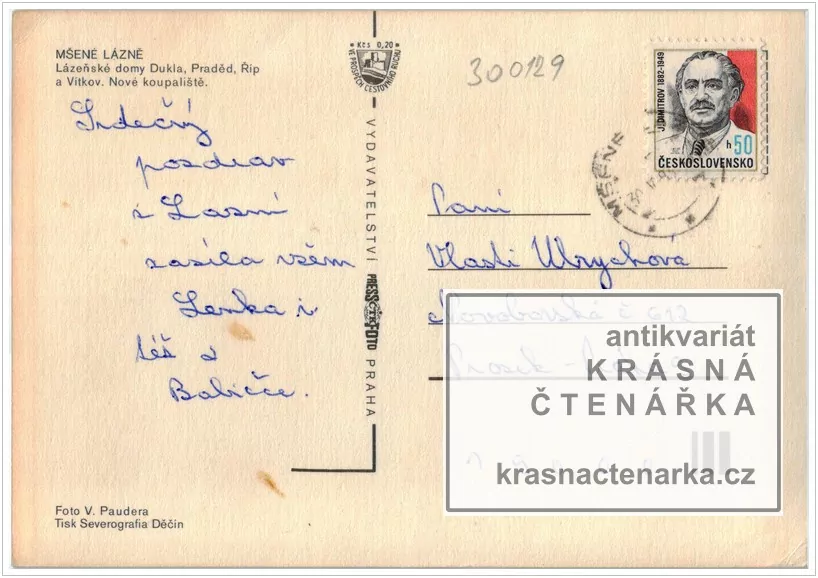 MŠENÉ LÁZNĚ
Lázeňské domy Dukla, Praděd, Říp
a Vítkov. Nové koupaliště.
Srdečný
pozdrav
z Lázní
zasílá všem
Lenka i
též z
Babičce.
Foto V. Paudera
Tisk Severografia Děčín
Kčs 0,20
VE PROSPĚCH CESTOVNÍHO RUCHU
VYDAVATELSTVÍ PRESSFOTO PRAHA
ČTK
300129
J. DIMITROV 1882-1949
h 50
ČESKOSLOVENSKO
MŠENÉ
Paní
Vlasti Ulrychová
Novoborská č 612
Prosek -
antikvariát
KRÁSNÁ
ČTENÁŘKA
krasnactenarka.cz